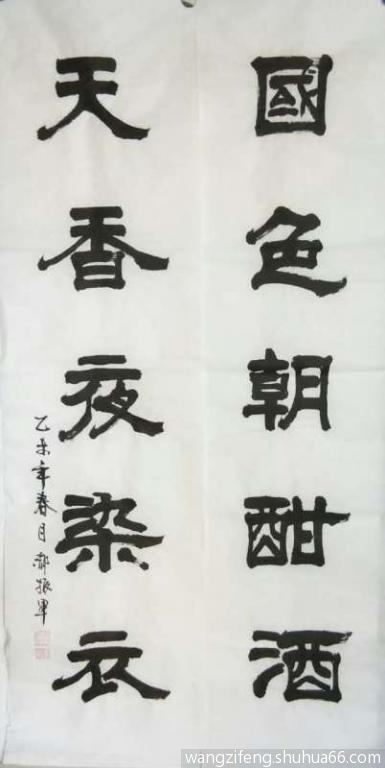 國色朝酣酒
天香夜染衣
乙未年春月郝振軍
wangzifeng.shuhua66.com